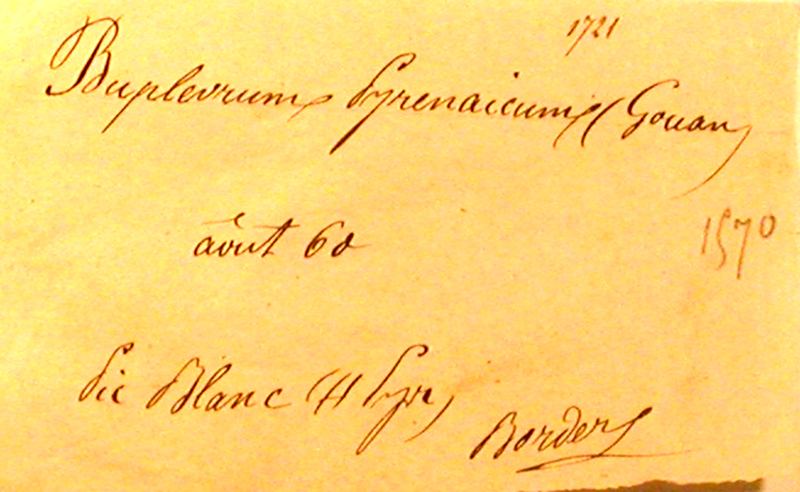 1721
Buplevrum Pyrenaicum (Gouan)
août 60
1570
Pic Blanc (H Pyr)
Bordère